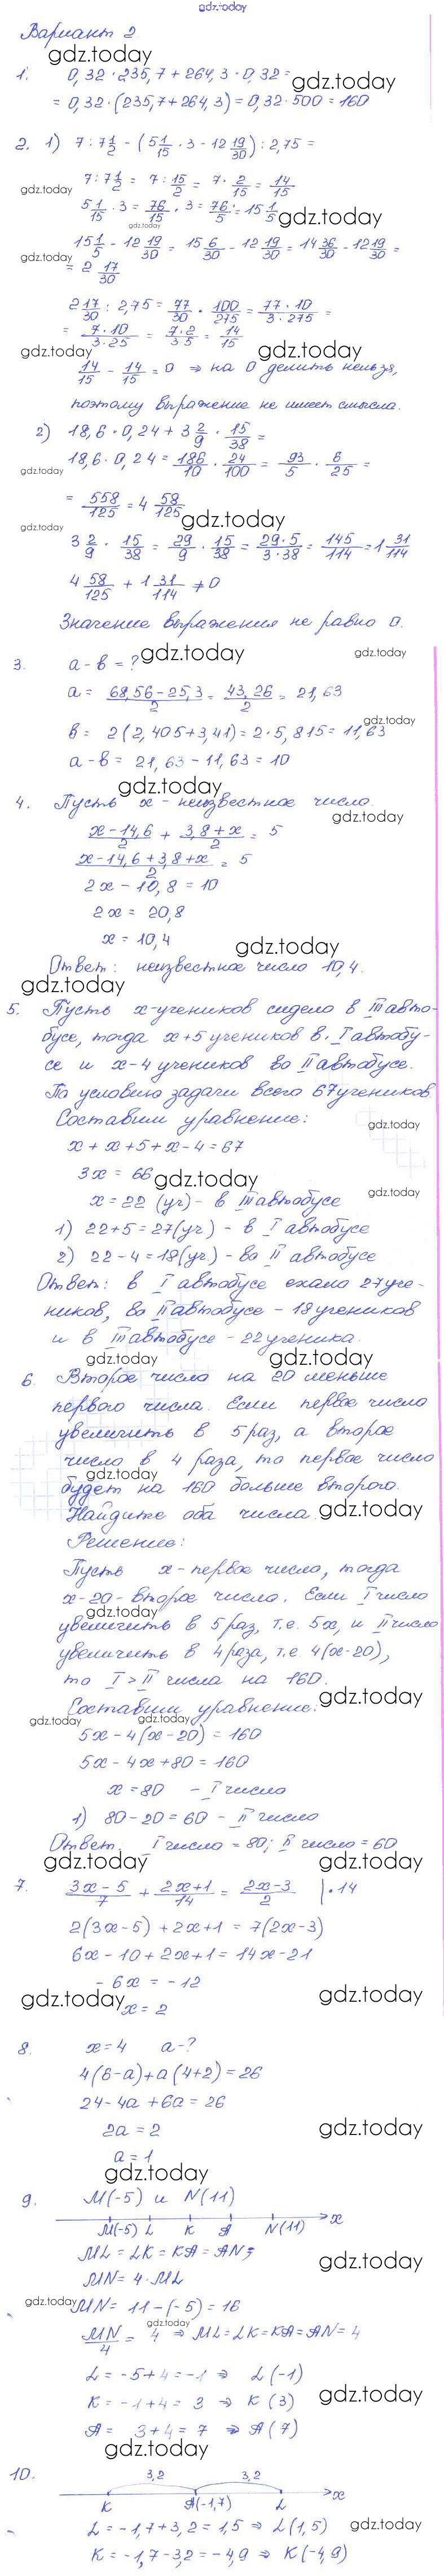 gdz.today
Вариант 2
gdz.today
1. 0,32·235,7+264,3·0,32=
gdz.today
=0,32·(235,7+264,3)=0,32·500=160
2. 1) 7:7 1/2 - (5 1/15 · 3 - 12 19/30) : 2,75 =
7:7 1/2 = 7: 15/2 = 7· 2/15 = 14/15
gdz.today
5 1/15 · 3 = 76/15 · 3 = 76/5 = 15 1/5
gdz.today
gdz.today
15 1/5 - 12 19/30 = 15 6/30 - 12 19/30 = 14 36/30 - 12 19/30 =
gdz.today
= 2 17/30
2 17/30 : 2,75 = 77/30 · 100/275 = 77·10/3·275 =
= 7·10/3·25 = 7·2/3·5 = 14/15
gdz.today gdz.today
14/15 - 14/15 = 0 ⇒ на 0 делить нельзя,
поэтому выражение не имеет смысла.
2) 18,6·0,24+3 2/9 · 15/38 =
gdz.today
18,6·0,24 = 186/10 · 24/100 = 93/5 · 6/25 =
= 558/125 = 4 58/125
gdz.today
gdz.today
3 2/9 · 15/38 = 29/9 · 15/38 = 29·5/3·38 = 145/114 = 1 31/114
4 58/125 + 1 31/114 ≠ 0
Значение выражения не равно 0.
3. a-b=?
gdz.today gdz.today
a = 68,56-25,3/2 = 43,26/2 = 21,63
gdz.today
b = 2(2,405+3,41)=2·5,815=11,63
a-b = 21,63-11,63=10
gdz.today
4. Пусть x-неизвестное число.
gdz.today
x-14,6/2 + 3,8+x/2 = 5
x-14,6+3,8+x/2 = 5
2x-10,8=10
2x=20,8
x=10,4
gdz.today
Ответ: неизвестное число 10,4.
gdz.today
5. Пусть x-учеников сидело в III авто-
бусе, тогда x+5 учеников в I автобу-
се и x-4 учеников во II автобусе.
По условию задачи всего 67 учеников.
Составим уравнение:
gdz.today
x+x+5+x-4=67
3x=66
gdz.today
x=22 (уч)- в III автобусе
gdz.today
1) 22+5=27(уч.) - в I автобусе
2) 22-4=18(уч.)-во II автобусе
Ответ: в I автобусе ехало 27 уче-
ников, во II автобусе - 18 учеников
и в III автобусе - 22 ученика.
gdz.today gdz.today
6. Второе число на 20 меньше
первого числа. Если первое число
увеличить в 5 раз, а второе
число в 4 раза, то первое число
gdz.today
будет на 160 больше второго.
Найдите оба числа.
gdz.today
Решение:
Пусть x-первое число, тогда
x-20-второе число. Если I число
gdz.today
увеличить в 5 раз, т.е. 5x, и II число
увеличить в 4 раза, т.е. 4(x-20),
то I > II числа на 160.
gdz.today
Составим уравнение:
gdz.today gdz.today
5x-4(x-20)=160
5x-4x+80=160
x=80 - I число
1) 80-20=60 - II число
Ответ. I число=80; II число=60
gdz.today gdz.today
7. 3x-5/7 + 2x+1/14 = 2x-3/2 |·14
2(3x-5)+2x+1=7(2x-3)
6x-10+2x+1=14x-21
-6x=-12
gdz.today gdz.today
x=2
8. x=4 a-?
4(6-a)+a(4+2)=26
24-4a+6a=26
2a=2
gdz.today
a=1
gdz.today
9. M(-5) и N(11)
M(-5) L K A N(11) x
ML=LK=KA=AN;
gdz.today
MN=4·ML
gdz.today
MN=11-(-5)=16
gdz.today
MN/4 = 4 ⇒ ML=LK=KA=AN=4
L=-5+4=-1 ⇒ L(-1)
K=-1+4=3 ⇒ K(3)
gdz.today
A= 3+4=7 ⇒ A(7)
gdz.today
10. 3,2 3,2
K A(-1,7) L x
L=-1,7+3,2=1,5 ⇒ L(1,5)
gdz.today
K=-1,7-3,2=-4,9 ⇒ K(-4,9)